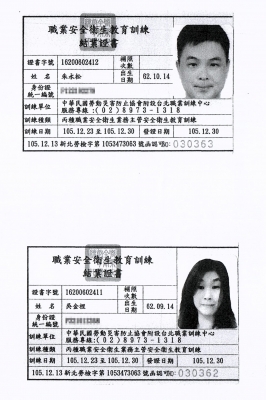 職業安全衛生教育訓練
結業證書
證書字號 16200602412 補照次數
姓名 朱永松 出生日期 62.10.14
身份證統一編號
訓練單位 中華民國勞動災害防止協會附設台北職業訓練中心
服務專線:(02)8973-1318
訓練種類 丙種職業安全衛生業務主管安全衛生教育訓練
訓練日期 105.12.23 至 105.12.30 發證日期 105.12.30
105.12.13 新北勞檢字第 1053473063 號函認可 NO: 030363
職業安全衛生教育訓練
結業證書
證書字號 16200602411 補照次數
姓名 吳金 出生日期 62.09.14
身份證統一編號
訓練單位 中華民國勞動災害防止協會附設台北職業訓練中心
服務專線:(02)8973-1318
訓練種類 丙種職業安全衛生業務主管安全衛生教育訓練
訓練日期 105.12.23 至 105.12.30 發證日期 105.12.30
105.12.13 新北勞檢字第 1053473063 號函認可 NO: 030362